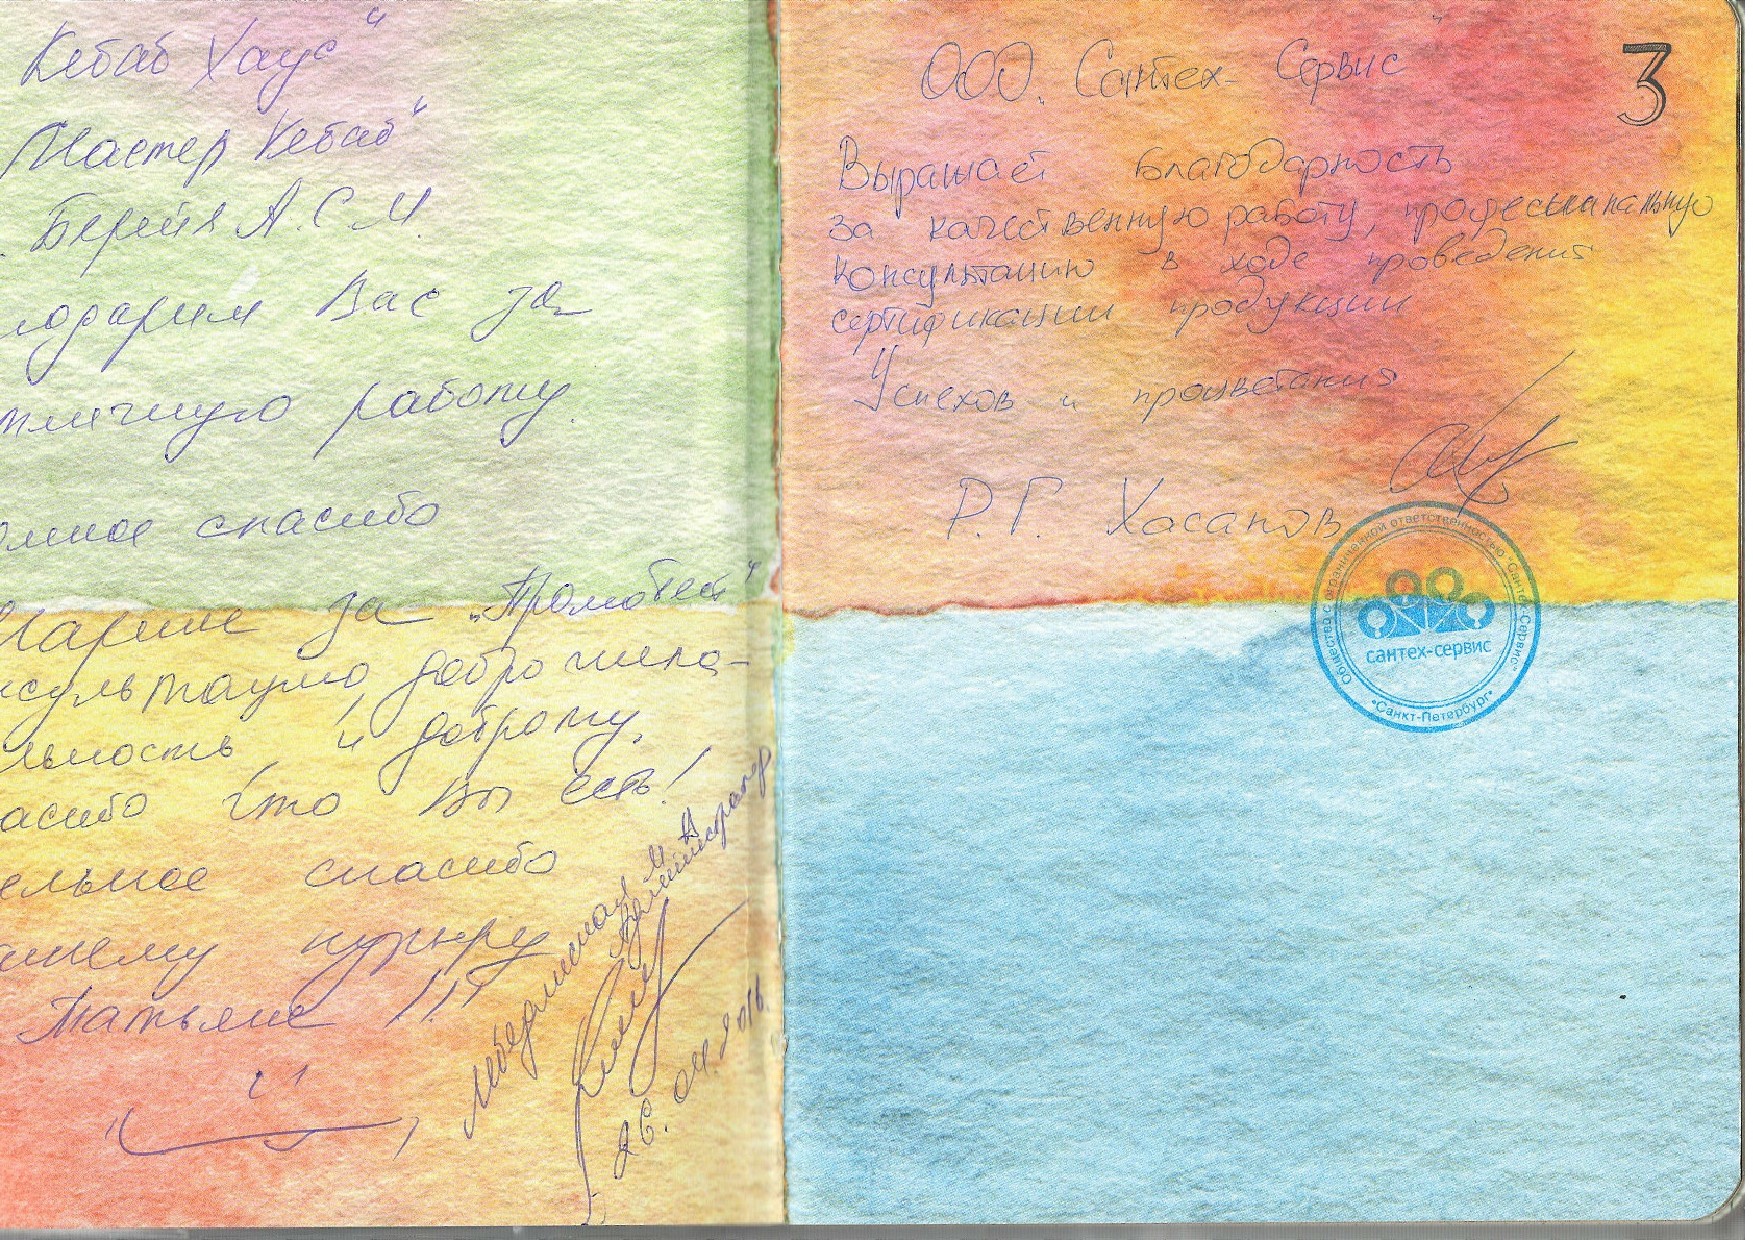 Кебаб Хаус"
Мастер Кебаб"
А.С.М.
лодарим Вас за
тличную работу.
омное спасибо
Марине за „Прометей"
нсультацию, доброжела-
льность и доброту,
асибо что Вы есть!
ельное спасибо
ашему курьеру
Татьяне !!!
Администратор
26.04.2016.
3
ООО. Сантех- Сервис
Выражает благодарность
за качественную работу, професыанальную
консультацию в ходе проведения
сертификации продукции
Успехов и процветания
Р.Г. Хасанов
Общество с ограниченной ответственностью "Сантех-Сервис"
сантех-сервис
•Санкт-Петербург•